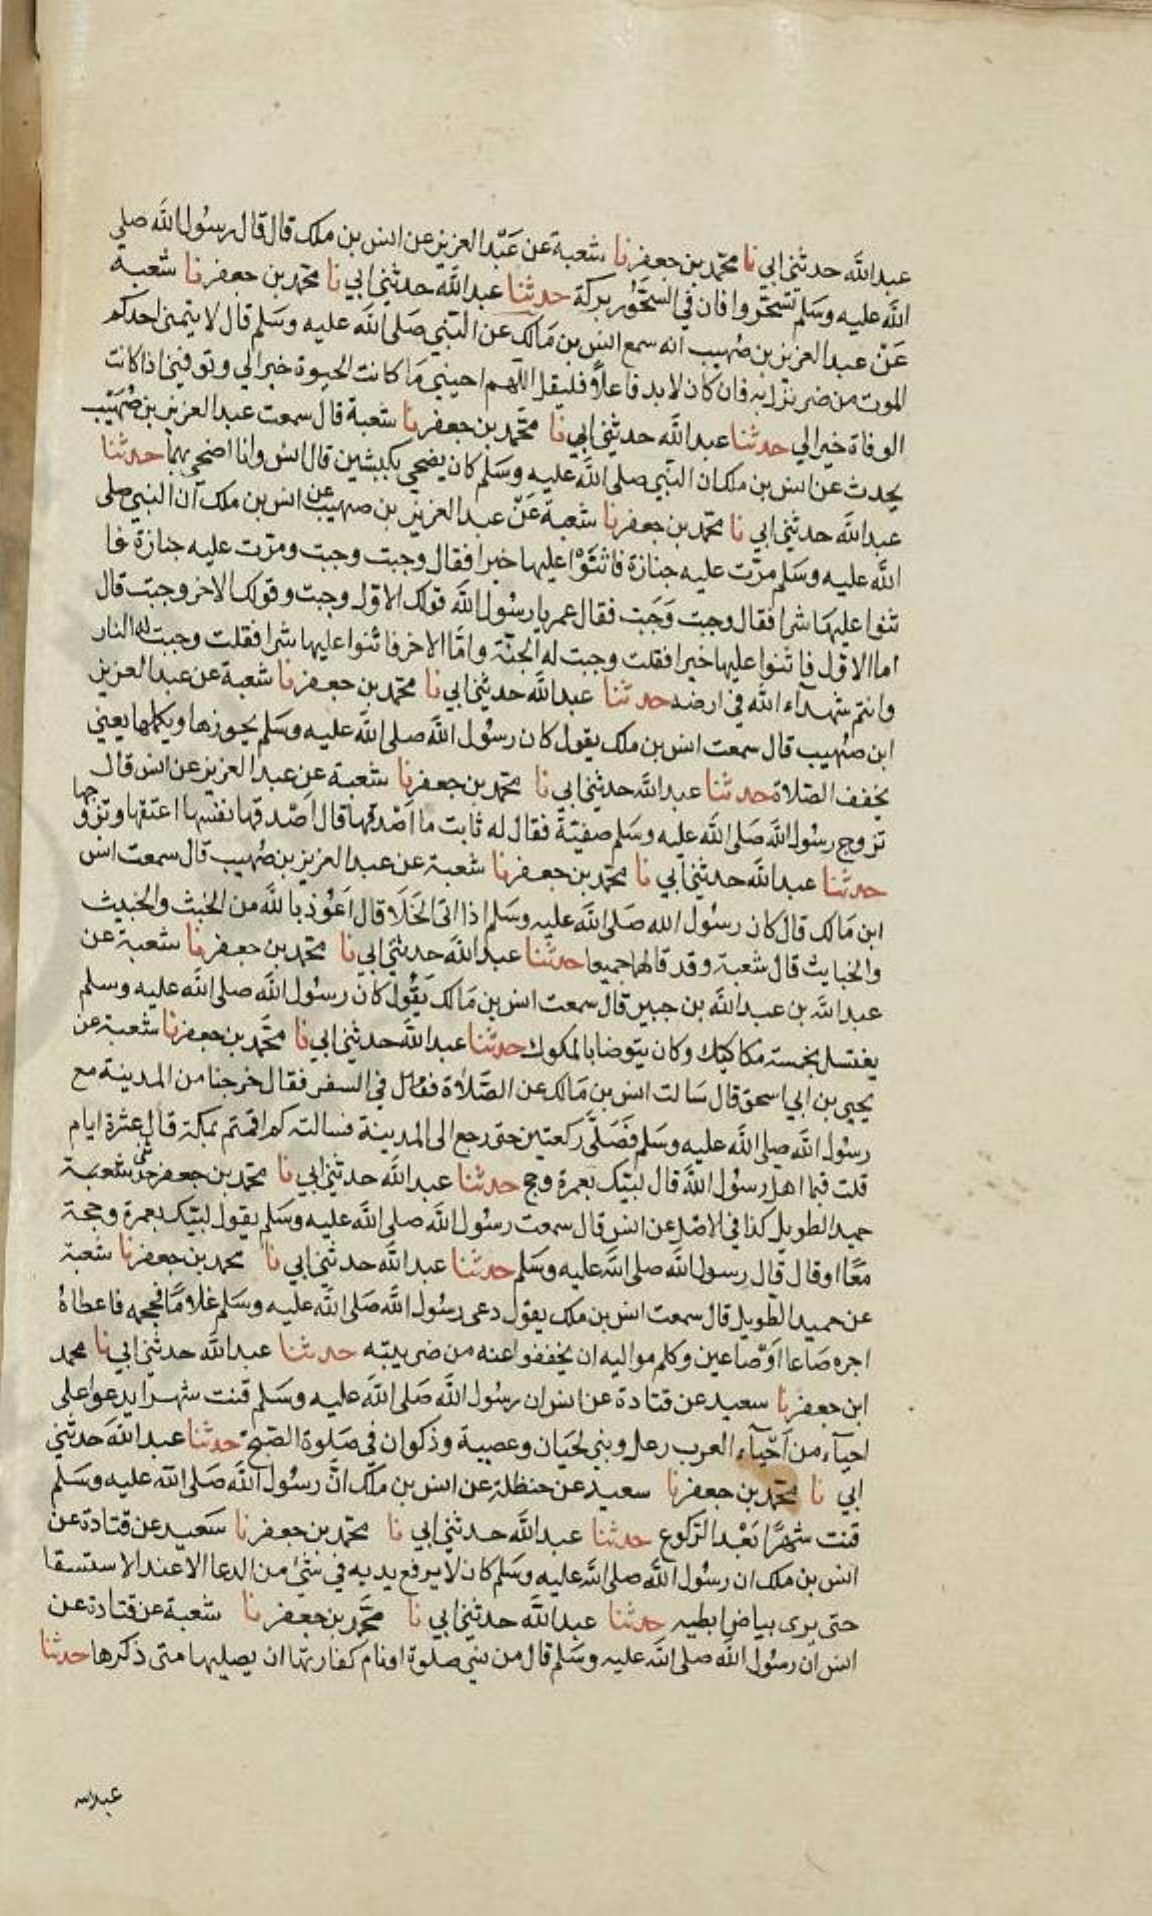 عبدالله حدثني ابي نا محمد بن جعفر نا شعبة عن عبد العزيز عن انس بن ملك قال قال رسول الله صلى
الله عليه وسلم تسحروا فان في السحور بركة حدثنا عبدالله حدثني ابي نا محمد بن جعفر نا شعبة
عن عبد العزيز بن صهيب انه سمع انس بن مالك عن النبي صلى الله عليه وسلم قال لا يتمنى احدكم
الموت من ضر نزل به فان كان لا بد فاعلا فليقل اللهم احيني ما كانت الحيوة خيرا لي وتوفني اذا كانت
الوفاة خيرا لي حدثنا عبدالله حدثني ابي نا محمد بن جعفر نا شعبة قال سمعت عبد العزيز بن صهيب
يحدث عن انس بن ملك ان النبي صلى الله عليه وسلم كان يضحي بكبشين قال انس وانا اضحي بهما حدثنا
عبدالله حدثني ابي نا محمد بن جعفر نا شعبة عن عبد العزيز بن صهيب عن انس بن ملك ان النبي صلى
الله عليه وسلم مرت عليه جنازة فاثنوا عليها خيرا فقال وجبت وجبت ومرت عليه جنازة فا
ثنوا عليها شرا فقال وجبت وجبت فقال عمر يا رسول الله قولك الاول وجبت وقولك الاخر وجبت قال
اما الاول فاثنوا عليها خيرا فقلت وجبت له الجنة واما الاخر فاثنوا عليها شرا فقلت وجبت له النار
وانتم شهدآء الله في ارضه حدثنا عبدالله حدثني ابي نا محمد بن جعفر نا شعبة عن عبد العزيز
ابن صهيب قال سمعت انس بن ملك يقول كان رسول الله صلى الله عليه وسلم يجوزها ويكملها يعني
يخفف الصلاة حدثنا عبدالله حدثني ابي نا محمد بن جعفر نا شعبة عن عبد العزيز عن انس قال
تزوج رسول الله صلى الله عليه وسلم صفية فقال له ثابت ما اصدقها قال اصدقها نفسها اعتقها وتزوجها
حدثنا عبدالله حدثني ابي نا محمد بن جعفر نا شعبة عن عبد العزيز بن صهيب قال سمعت انس
ابن مالك قال كان رسول الله صلى الله عليه وسلم اذا اتى الخلا قال اعوذ بالله من الخبث والخبيث
والخبايث قال شعبة وقد قالها جميعا حدثنا عبدالله حدثني ابي نا محمد بن جعفر نا شعبة عن
عبدالله بن عبدالله بن جبير قال سمعت انس بن مالك يقول كان رسول الله صلى الله عليه وسلم
يغتسل بخمسة مكاكيك وكان يتوضا بالمكوك حدثنا عبدالله حدثني ابي نا محمد بن جعفر نا شعبة عن
يحيى بن ابي اسحق قال سالت انس بن مالك عن الصلاة في السفر فقال خرجنا من المدينة مع
رسول الله صلى الله عليه وسلم فصلى ركعتين حتى رجع الى المدينة فسالته كم اقمتم بمكة قال عشرة ايام
قلت فبما اهل رسول الله قال لبيك بعمرة وحج حدثنا عبدالله حدثني ابي نا محمد بن جعفر شعبة
حميد الطويل كذا في الاصل عن انس قال سمعت رسول الله صلى الله عليه وسلم يقول لبيك بعمرة وحجة
معا او قال قال رسول الله صلى الله عليه وسلم حدثنا عبدالله حدثني ابي نا محمد بن جعفر نا شعبة
عن حميد الطويل قال سمعت انس بن ملك يقول دعى رسول الله صلى الله عليه وسلم غلاما فحجمه فاعطاه
اجره صاعا او صاعين وكلم مواليه ان يخففوا عنه من ضريبته حدثنا عبدالله حدثني ابي نا محمد
ابن جعفر نا سعيد عن قتادة عن انس ان رسول الله صلى الله عليه وسلم قنت شهرا يدعوا على
احيآء من احيآء العرب رعل وبني لحيان وعصية وذكوان في صلوة الصبح حدثنا عبدالله حدثني
ابي نا محمد بن جعفر نا سعيد عن حنظلة عن انس بن ملك ان رسول الله صلى الله عليه وسلم
قنت شهرا بعد الركوع حدثنا عبدالله حدثني ابي نا محمد بن جعفر نا سعيد عن قتادة عن
انس بن ملك ان رسول الله صلى الله عليه وسلم كان لا يرفع يديه في شئ من الدعا الا عند الاستسقا
حتى يرى بياض ابطيه حدثنا عبدالله حدثني ابي نا محمد بن جعفر نا شعبة عن قتادة عن
انس ان رسول الله صلى الله عليه وسلم قال من نسي صلوة او نام كفارتها ان يصليها متى ذكرها حدثنا
عبدالله